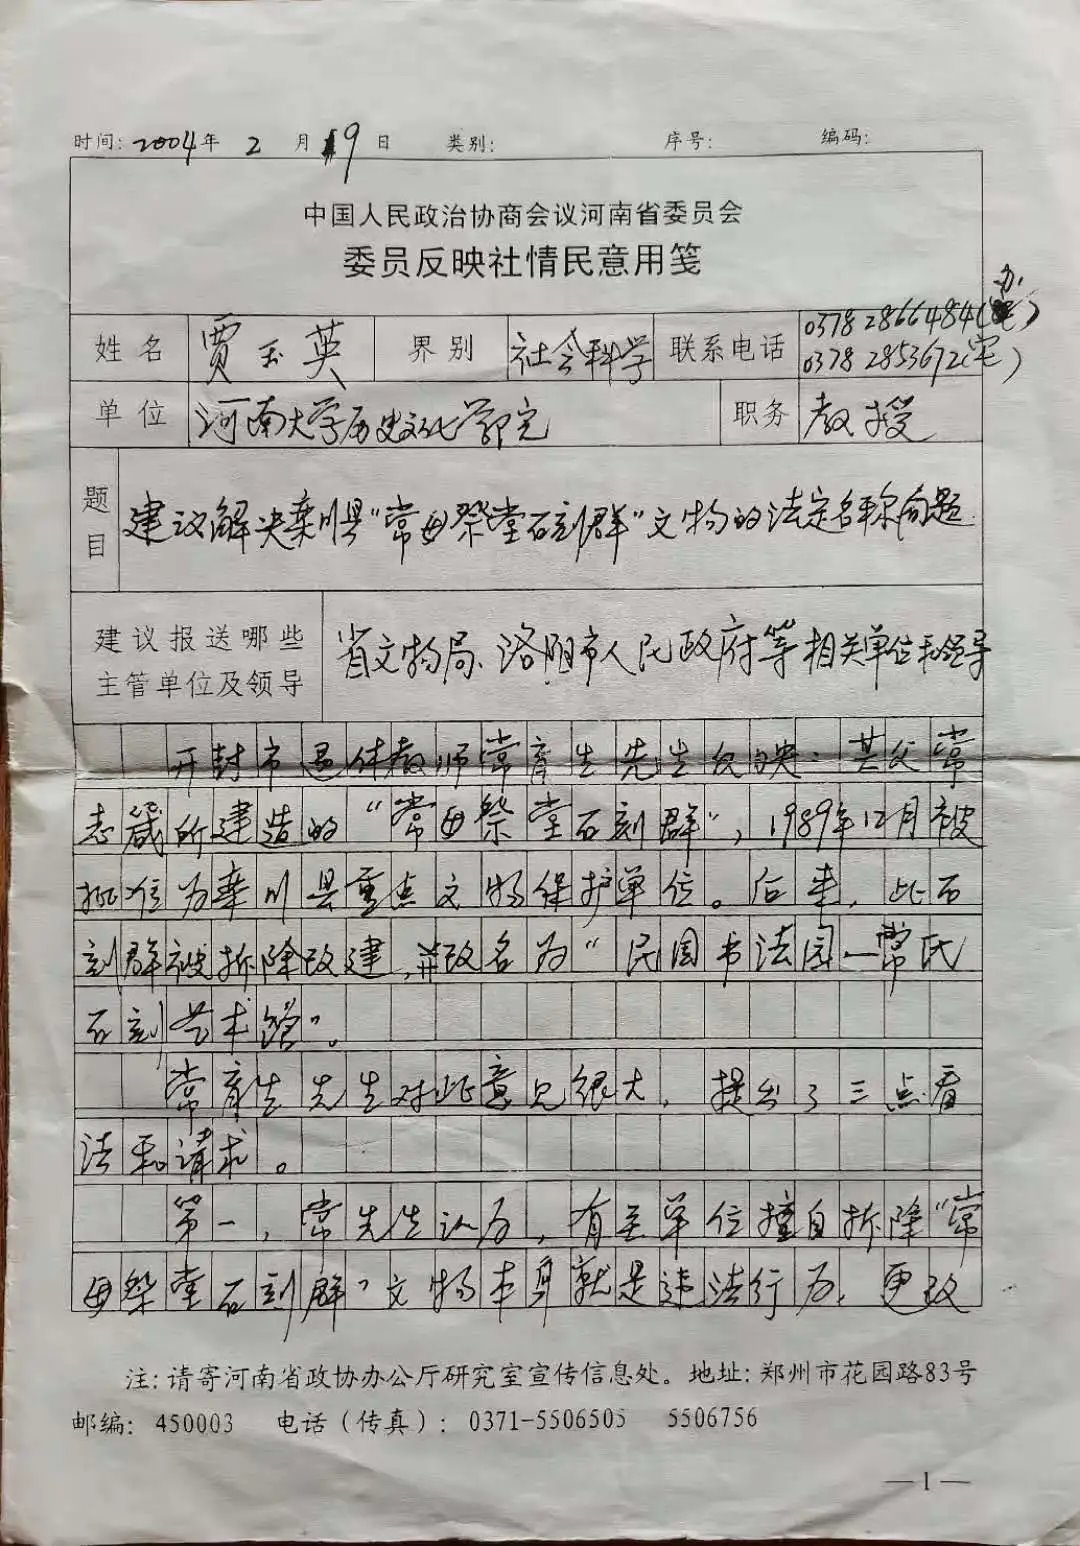 时间: 2004年 2 月 19 日 类别: 序号: 编码:
中国人民政治协商会议河南省委员会
委员反映社情民意用笺
姓名 贾玉英 界别 社会科学 联系电话 0378 2866484(办) 0378 2853672(宅)
单位 河南大学历史文化学院 职务 教授
题目 建议解决栾川县“常母祭堂石刻群”文物的法定名称问题
建议报送哪些主管单位及领导 省文物局、洛阳市人民政府等相关单位和领导
开封市退休教师常育生先生反映：其父常
志箴所建造的“常母祭堂石刻群”，1989年12月被
批准为栾川县重点文物保护单位。后来，此石
刻群被拆除改建，并改名为“民国书法园—常氏
石刻艺术馆”。
常育生先生对此意见很大，提出了三点看
法和请求。
第一，常先生认为，有关单位擅自拆除“常
母祭堂石刻群”文物本身就是违法行为，更改
注:请寄河南省政协办公厅研究室宣传信息处。地址:郑州市花园路83号
邮编: 450003 电话(传真): 0371-5506505 5506756
—1—